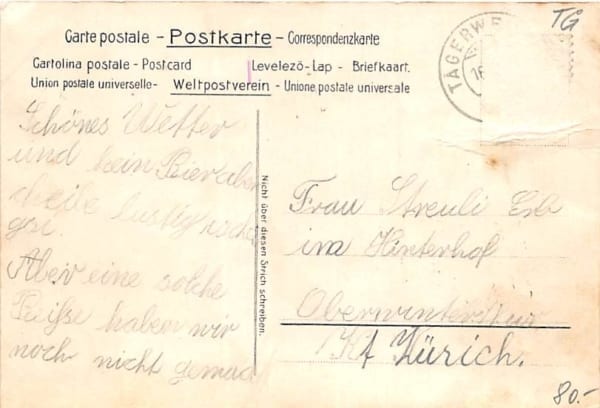 Carte postale - Postkarte - Correspondenzkarte
Cartolina postale - Postcard Levelező-Lap - Briefkaart.
Union postale universelle - Weltpostverein - Unione postale universale
TÄGERW
16
TG
Schönes Wetter
und kein
lustig
gsi.
Aber eine solche
haben wir
noch nicht gemac
Nicht über diesen Strich schreiben.
Frau Streuli
im Hinterhof
Oberwinterthur
Kt Zürich.
80.-